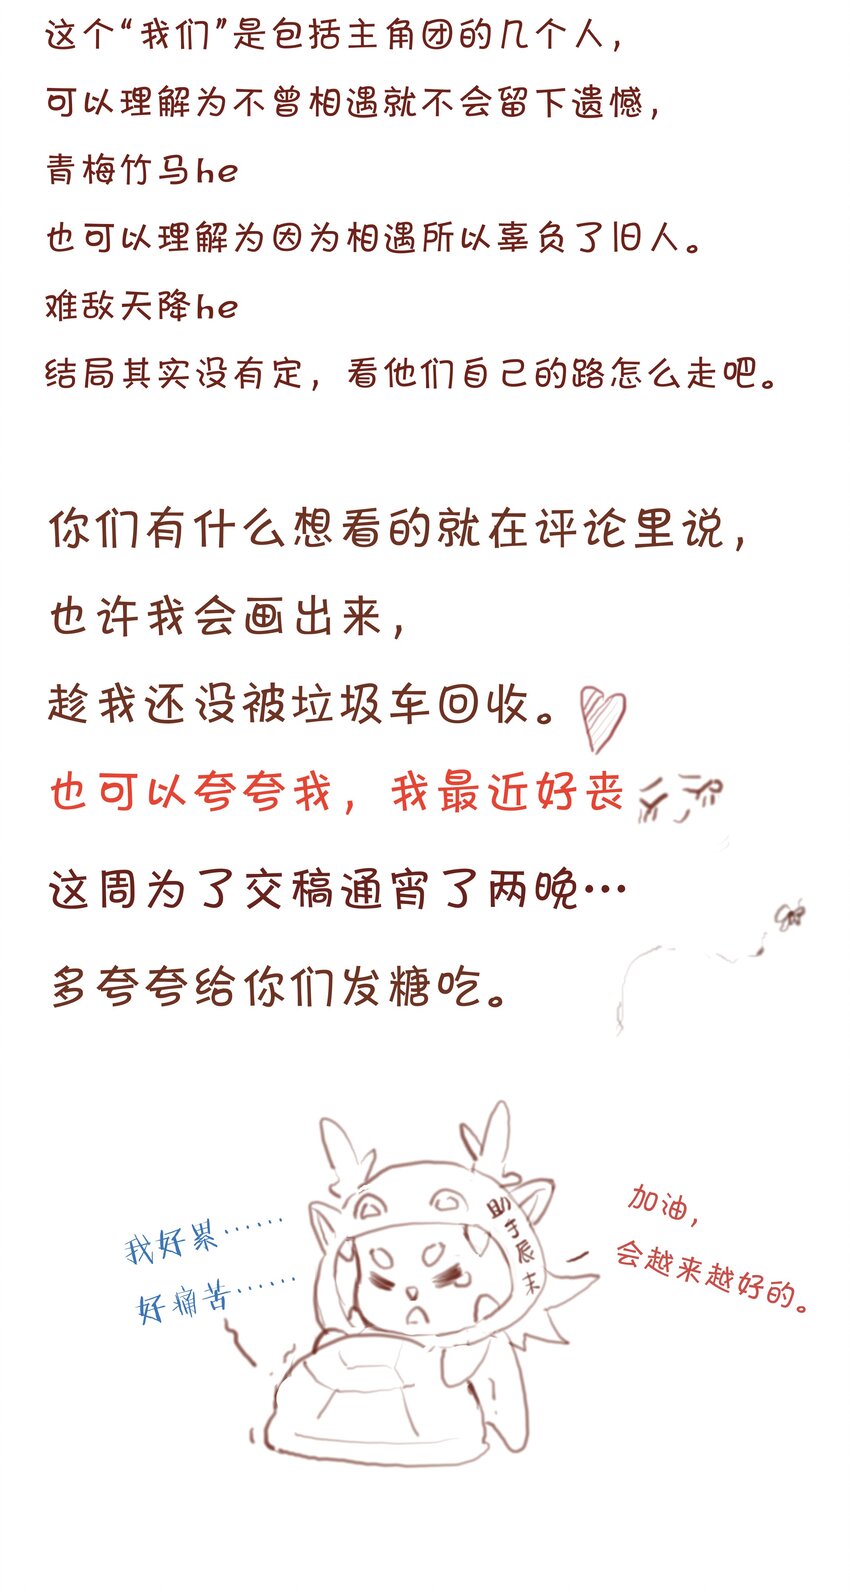 这个“我们”是包括主角团的几个人，
可以理解为不曾相遇就不会留下遗憾，
青梅竹马he
也可以理解为因为相遇所以辜负了旧人。
难敌天降he
结局其实没有定，看他们自己的路怎么走吧。
你们有什么想看的就在评论里说，
也许我会画出来，
趁我还没被垃圾车回收。
也可以夸夸我，我最近好丧
这周为了交稿通宵了两晚…
多夸夸给你们发糖吃。
助手辰末
我好累……
好痛苦……
加油，
会越来越好的。